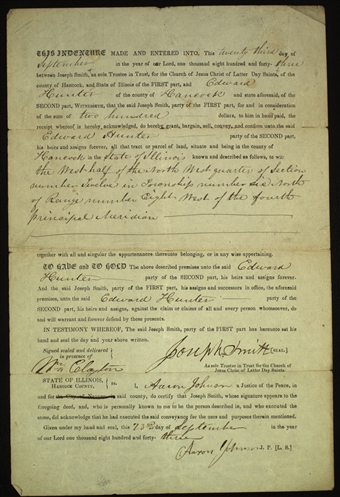 THIS INDENTURE MADE AND ENTERED INTO, This twenty third day of
September in the year of our Lord, one thousand eight hundred and forty-three
between Joseph Smith, as sole Trustee in Trust, for the Church of Jesus Christ of Latter Day Saints, of the
county of Hancock, and State of Illinois of the FIRST part, and Edward
Hunter of the county of Hancock and state aforesaid, of the
SECOND part, WITNESSETH, that the said Joseph Smith, party of the FIRST part, for and in consideration
of the sum of two hundred dollars, to him in hand paid, the
receipt whereof is hereby acknowledged, do hereby grant, bargain, sell, convey, and confirm unto the said
Edward Hunter party of the SECOND part,
his heirs and assigns forever, all that tract or parcel of land, situate and being in the county of
Hancock in the State of Illinois known and described as follows, to wit:
the West half of the North West quarter of Section
number twelve in Township number six North
of Range number Eight West of the fourth
principal Meridian
together with all and singular the appurtenances thereunto belonging, or in any wise appertaining.
TO HAVE and TO HOLD The above described premises unto the said Edward
Hunter party of the SECOND part, his heirs and assigns forever.
And the said Joseph Smith, party of the FIRST part, his assigns and successors in office, the aforesaid
premises, unto the said Edward Hunter party of the
SECOND part, his heirs and assigns, against the claim or claims of all and every person whomsoever, does
and will warrant and forever defend by these presents.
IN TESTIMONY WHEREOF, The said Joseph Smith, party of the FIRST part has hereunto set his
hand and seal the day and year above written.
Signed sealed and delivered
in presence of
Joseph Smith [SEAL.]
Wm Clayton
As sole Trustee in Trust for the Church of
Jesus Christ of Latter Day Saints.
STATE OF ILLINOIS,
HANCOCK COUNTY, ss. I, Aaron Johnson a Justice of the Peace, in
and for the said county, do certify that Joseph Smith, whose signature appears to the
foregoing deed, and, who is personally known to me to be the person described in, and who executed the
same, did acknowledge that he had executed the said conveyance for the uses and purposes therein mentioned.
Given under my hand and seal, this 23 day of September in the year
of our Lord one thousand eight hundred and forty-three
Aaron Johnson J. P. [L. S.]